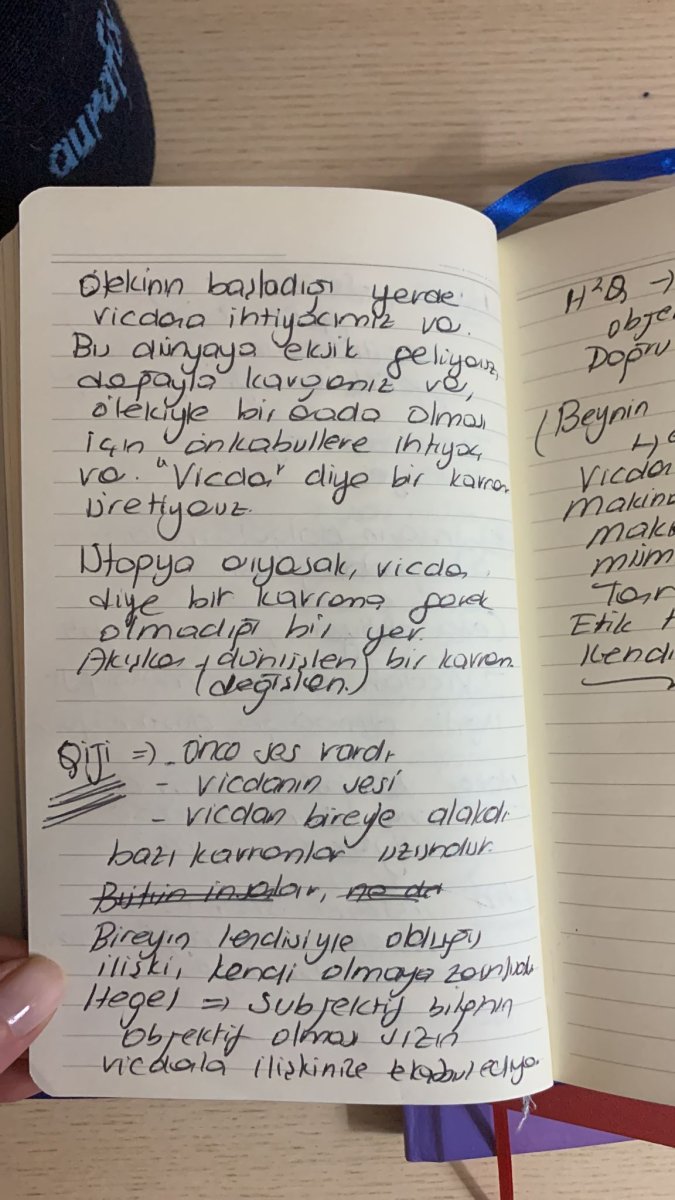 Ötekinin başladığı yerde
vicdana ihtiyacımız var.
Bu dünyaya eksik geliyoruz,
doğayla kavgamız var,
ötekiyle bir arada olması
için önkabullere ihtiyaç
var. "Vicdan" diye bir kavram
üretiyoruz.
Ütopya arıyasak, vicdan
diye bir kavrama gerek
olmadığı bir yer.
Akışkan, dönüşen bir kavram.
(değişken.)
=) - Önce ses vardı,
- vicdanın sesi
- vicdan bireyle alakalı
bazı kavramlar
Bütün
Bireyin kendisiyle olduğu
ilişki, kendi olmaya zorunludur
Hegel => Subjektif bilginin
objektif olması sizin
vicdanla ilişkinize tekabul ediyor.
H²O →
obje
Doğru
(Beynin
Vicdan
makin
mak
müm
Tanr
Etik
kendi